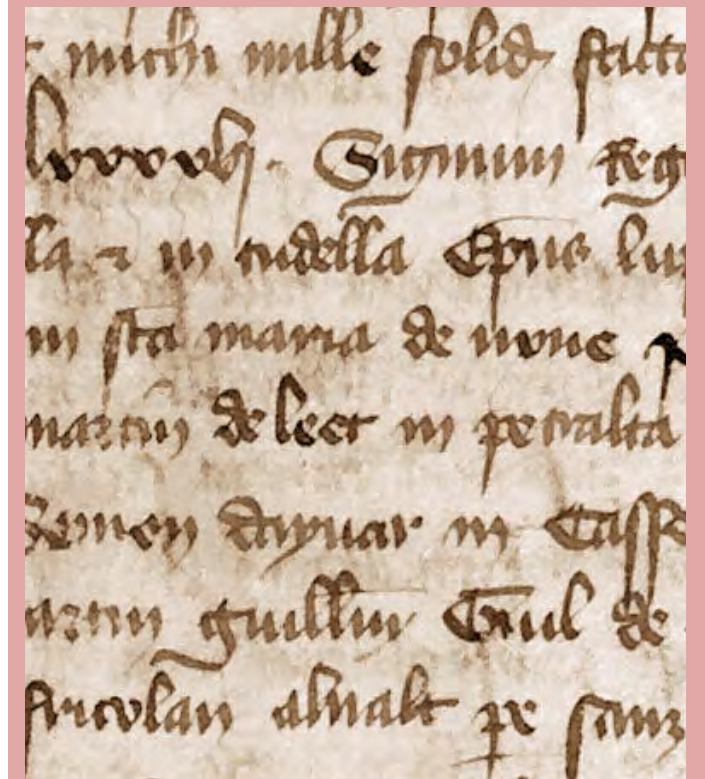 michi mille solid facta
lxxxxvij. Signum Reg
lla & in tudella Eps lup
in sta maria de uxue
martin de leet in petralta
Semen daynar in Casse
artin guillm de
alualt pe sanz